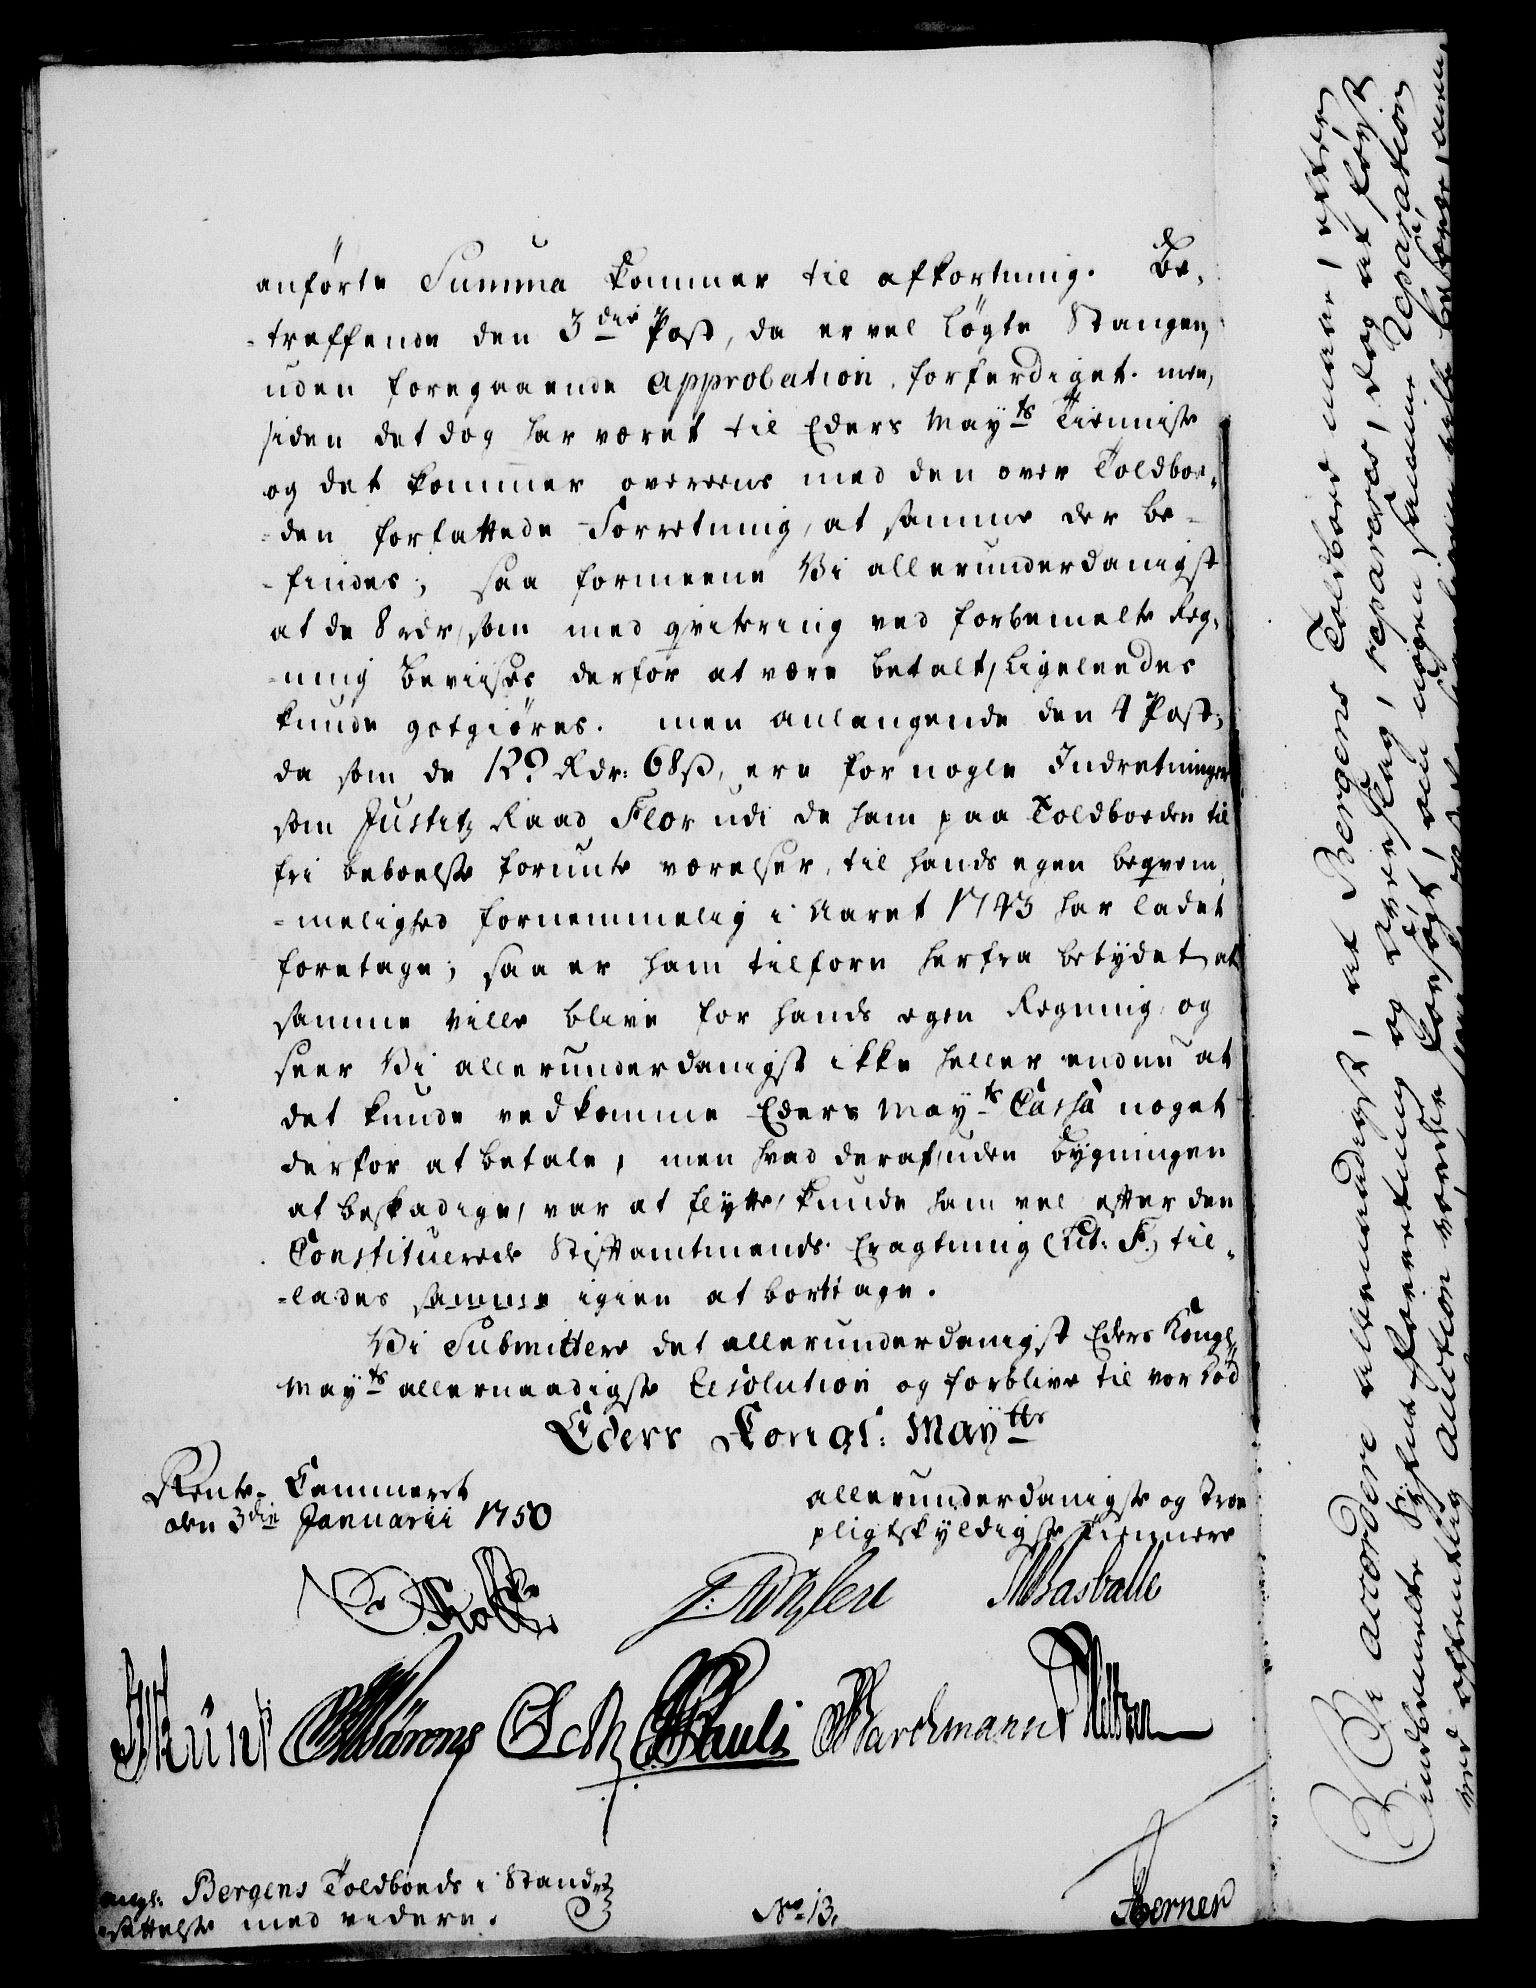 anførte Summa kommer til afkortning. Be-
-treffende den 3die Post, da er vel Løgte Stangen,
uden foregaaende approbation, forferdiget. men,
siden det dog har været til Eders Mayts Tieniste
og det kommer overeens med den over Toldboe-
-den forfattede Forretning, at samme der be-
-findes; saa formeene Vi allerunderdanigst
at de 8 rdr, som med qvitering ved forbemelte Reg-
-ning beviises derfor at være betalt, Ligeleedes
kunde gotgiøres. men anlangende den 4 Post;
da som de Rdr: 68 ß, ere for nogle Indretninger
som Justitz Raad Flor udi de ham paa Toldboeden til
fri beboelse forunte værelser, til hands egen beqvem
-melighed fornemmelig i Aaret 1743 har ladet
foretage; saa er ham tilforn herfra betydet, at
samme ville blive for hands egen Regning, og
seer Vi allerunderdanigst ikke heller endnu at
det kunde vedkomme Eders Mayts Cassa noget
derfor at betale, men hvad deraf, uden bygningen
at beskadige, var at flytte, kunde ham vel efter den
Constituerede Stiftamtmands Eragtning (Lit: F.) til-
-lades samme igien at borttage.
Vi Submittere det allerunderdanigst Eders Kongl:
Mayts allernaadigste Resolution og forblive til vor død
Eders Kongl: Maytts
Rente-Cammeret
den 3die Januarii 1750
allerunderdanigste og Troe
pligtskyldigste Tiennere
Holste
Rasballe
Pauli
Barchmann
angl: Bergens Toldboeds i Stand
sættelse med videre.
No 13.
Berner
Vi accordere allernaadigst, at Bergens Toldboed maae, efter
indbemelte Syns-Forretning og overslag, repareres, dog at først
ved offentlig auction vorder forsøgt, om nogen samme Reparation